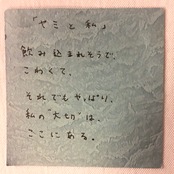 「ヤミと私」
飲み込まれそうで、
こわくて、
それでもやっぱり、
私の"大切"は、
ここにある。